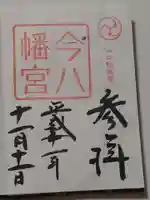 参拝
今八
幡宮
平成二十一年
十一月十一日